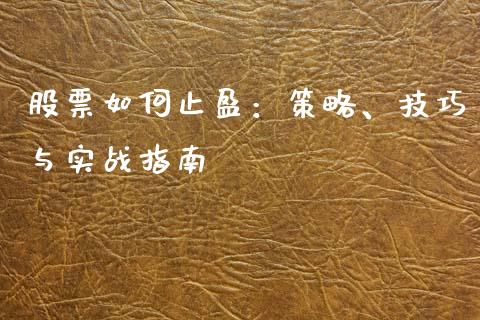 股票如何止盈：策略、技巧
与实战指南